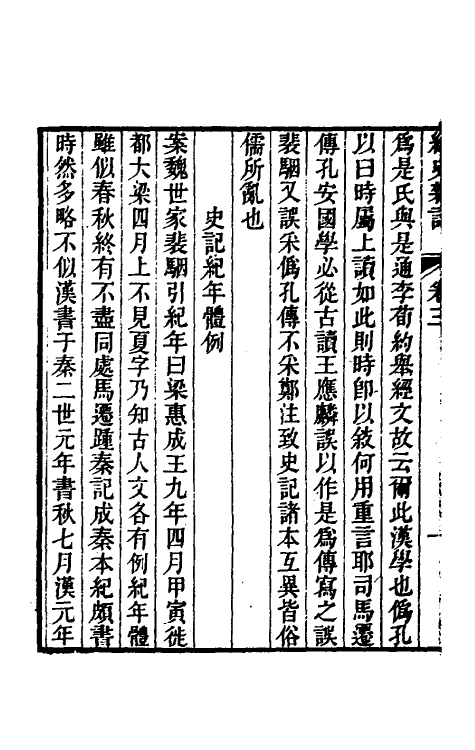 爲是氏與是通李荀約舉經文故云爾此漢學也僞孔
以曰時屬上讀如此則時卽以敍何用重言耶司馬遷
傳孔安國學必從古讀王應麟誤以作是爲傳寫之誤
裴駰又誤采僞孔傳不采鄭注致史記諸本互異皆俗
儒所亂也
史記紀年體例
案魏世家裴駰引紀年曰梁惠成王九年四月甲寅徙
都大梁四月上不見夏字乃知古人文各有例紀年體
雖似春秋終有不盡同處馬遷踵秦記成秦本紀頗書
時然多略不似漢書于秦二世元年書秋七月漢元年